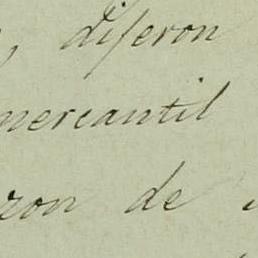 , dijeron
mercantil
zon de